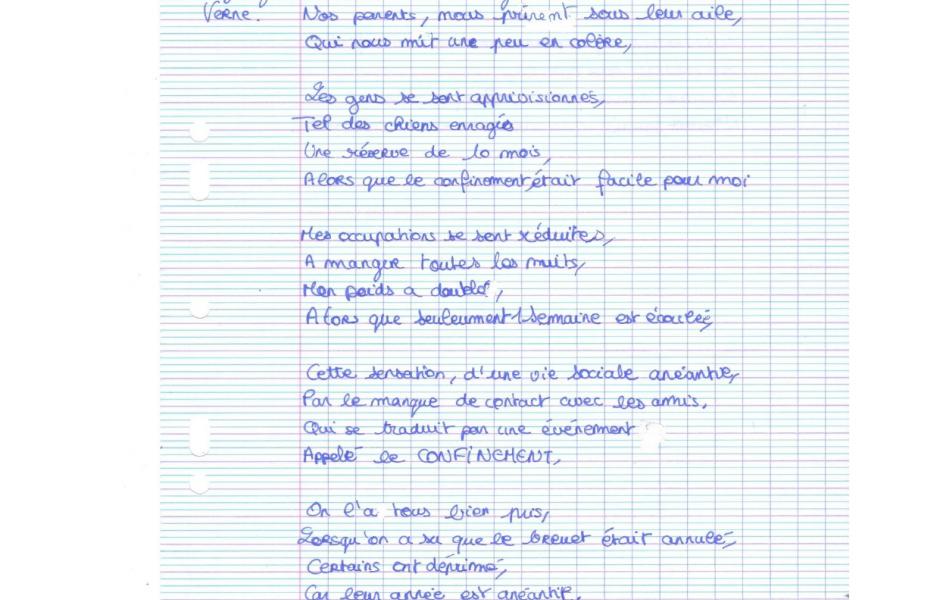 Verne.
Nos parents, nous prirent sous leur aile,
Qui nous mit une peu en colère,
Les gens se sont approvisionnés,
Tel des chiens enragés
Une réserve de 10 mois,
Alors que le confinement était facile pour moi
Mes occupations se sont réduites,
A manger toutes les nuits,
Mon poids a doublé,
Alors que seuleument 1 semaine est écoulée,
Cette sensation, d'une vie sociale anéantie,
Par le manque de contact avec les amis,
Qui se traduit par une événement
Appelé le CONFINEMENT,
On l'a tous bien pris,
Lorsqu'on a su que le brevet était annulé,
Certains ont déprimé,
Car leur année est anéantie,